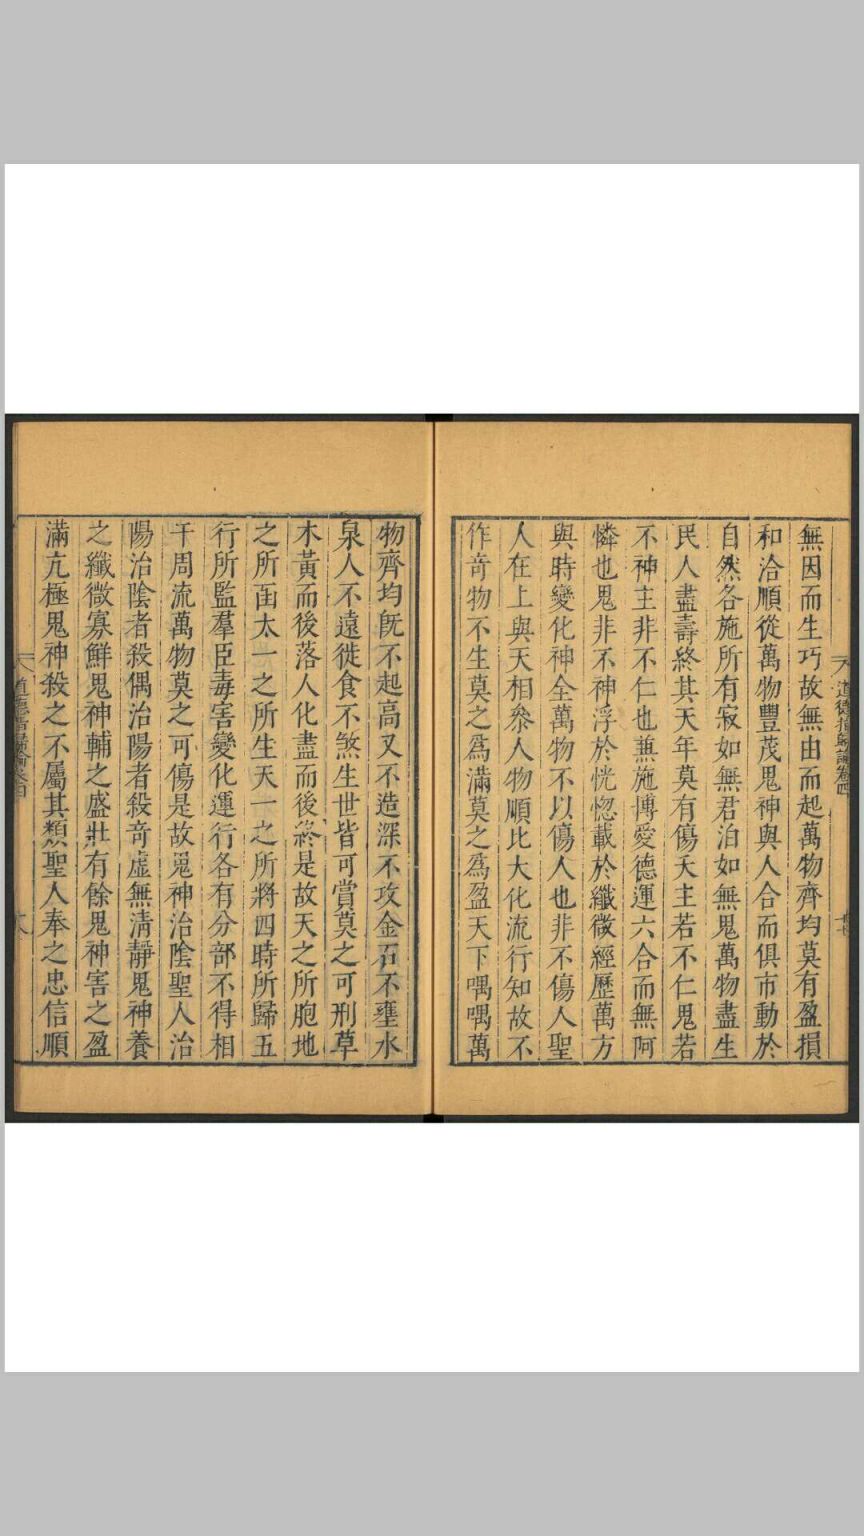 無因而生巧故無由而起萬物齊均莫有盈損
和洽順從萬物豐茂鬼神與人合而俱市動於
自然各施所有寂如無君泊如無鬼萬物盡生
民人盡壽終其天年莫有傷夭主若不仁鬼若
不神主非不仁也兼施博愛德運六合而無阿
憐也鬼非不神浮於恍惚載於纖微經歷萬方
與時變化神全萬物不以傷人也非不傷人聖
人在上與天相叅人物順比大化流行知故不
作竒物不生莫之爲滿莫之爲盈天下喁喁萬
物齊均旣不起高又不造深不攻金石不壅水
泉人不遠徙食不煞生世皆可賞莫之可刑草
木黃而後落人化盡而後終是故天之所胞地
之所
太一之所生天一之所將四時所歸五
行所監羣臣毒害變化運行各有分部不得相
干周流萬物莫之可傷是故鬼神治陰聖人治
陽治陰者殺偶治陽者殺竒虛無清靜鬼神養
之纖微寡鮮鬼神輔之盛壯有餘鬼神害之盈
滿亢極鬼神殺之不屬其類聖人奉之忠信順
道德指歸論卷四